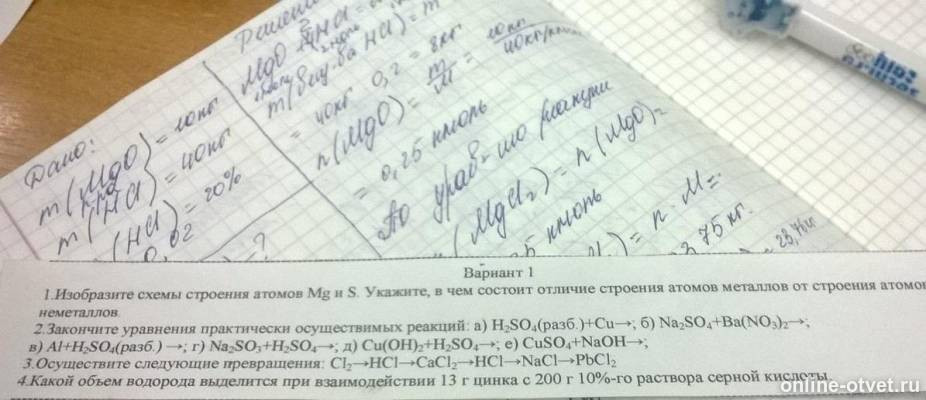 Дано:
m(MgO) = 10кг
m(HCl) = 40кг
(HCl) = 20%
0,02
= ?
MgO HCl =
m(HCl) = m
= 40кг 0,2 = 8кг
n(MgO) = m/M = 10кг/40кг/
= 0,25 кмоль
По реакции
(MgCl₂) = n(MgO) =
кмоль
) = n · M =
75 кг.
Вариант 1
1.Изобразите схемы строения атомов Mg и S. Укажите, в чем состоит отличие строения атомов металлов от строения атомо
неметаллов.
2.Закончите уравнения практически осуществимых реакций: а) H₂SO₄(разб.)+Cu→; б) Na₂SO₄+Ba(NO₃)₂→;
в) Al+H₂SO₄(разб.) →; г) Na₂SO₃+H₂SO₄→; д) Cu(OH)₂+H₂SO₄→; е) CuSO₄+NaOH→;
3.Осуществите следующие превращения: Cl₂→HCl→CaCl₂→HCl→NaCl→PbCl₂
4.Какой объем водорода выделится при взаимодействии 13 г цинка с 200 г 10%-го раствора серной кислоты.
online-otvet.ru